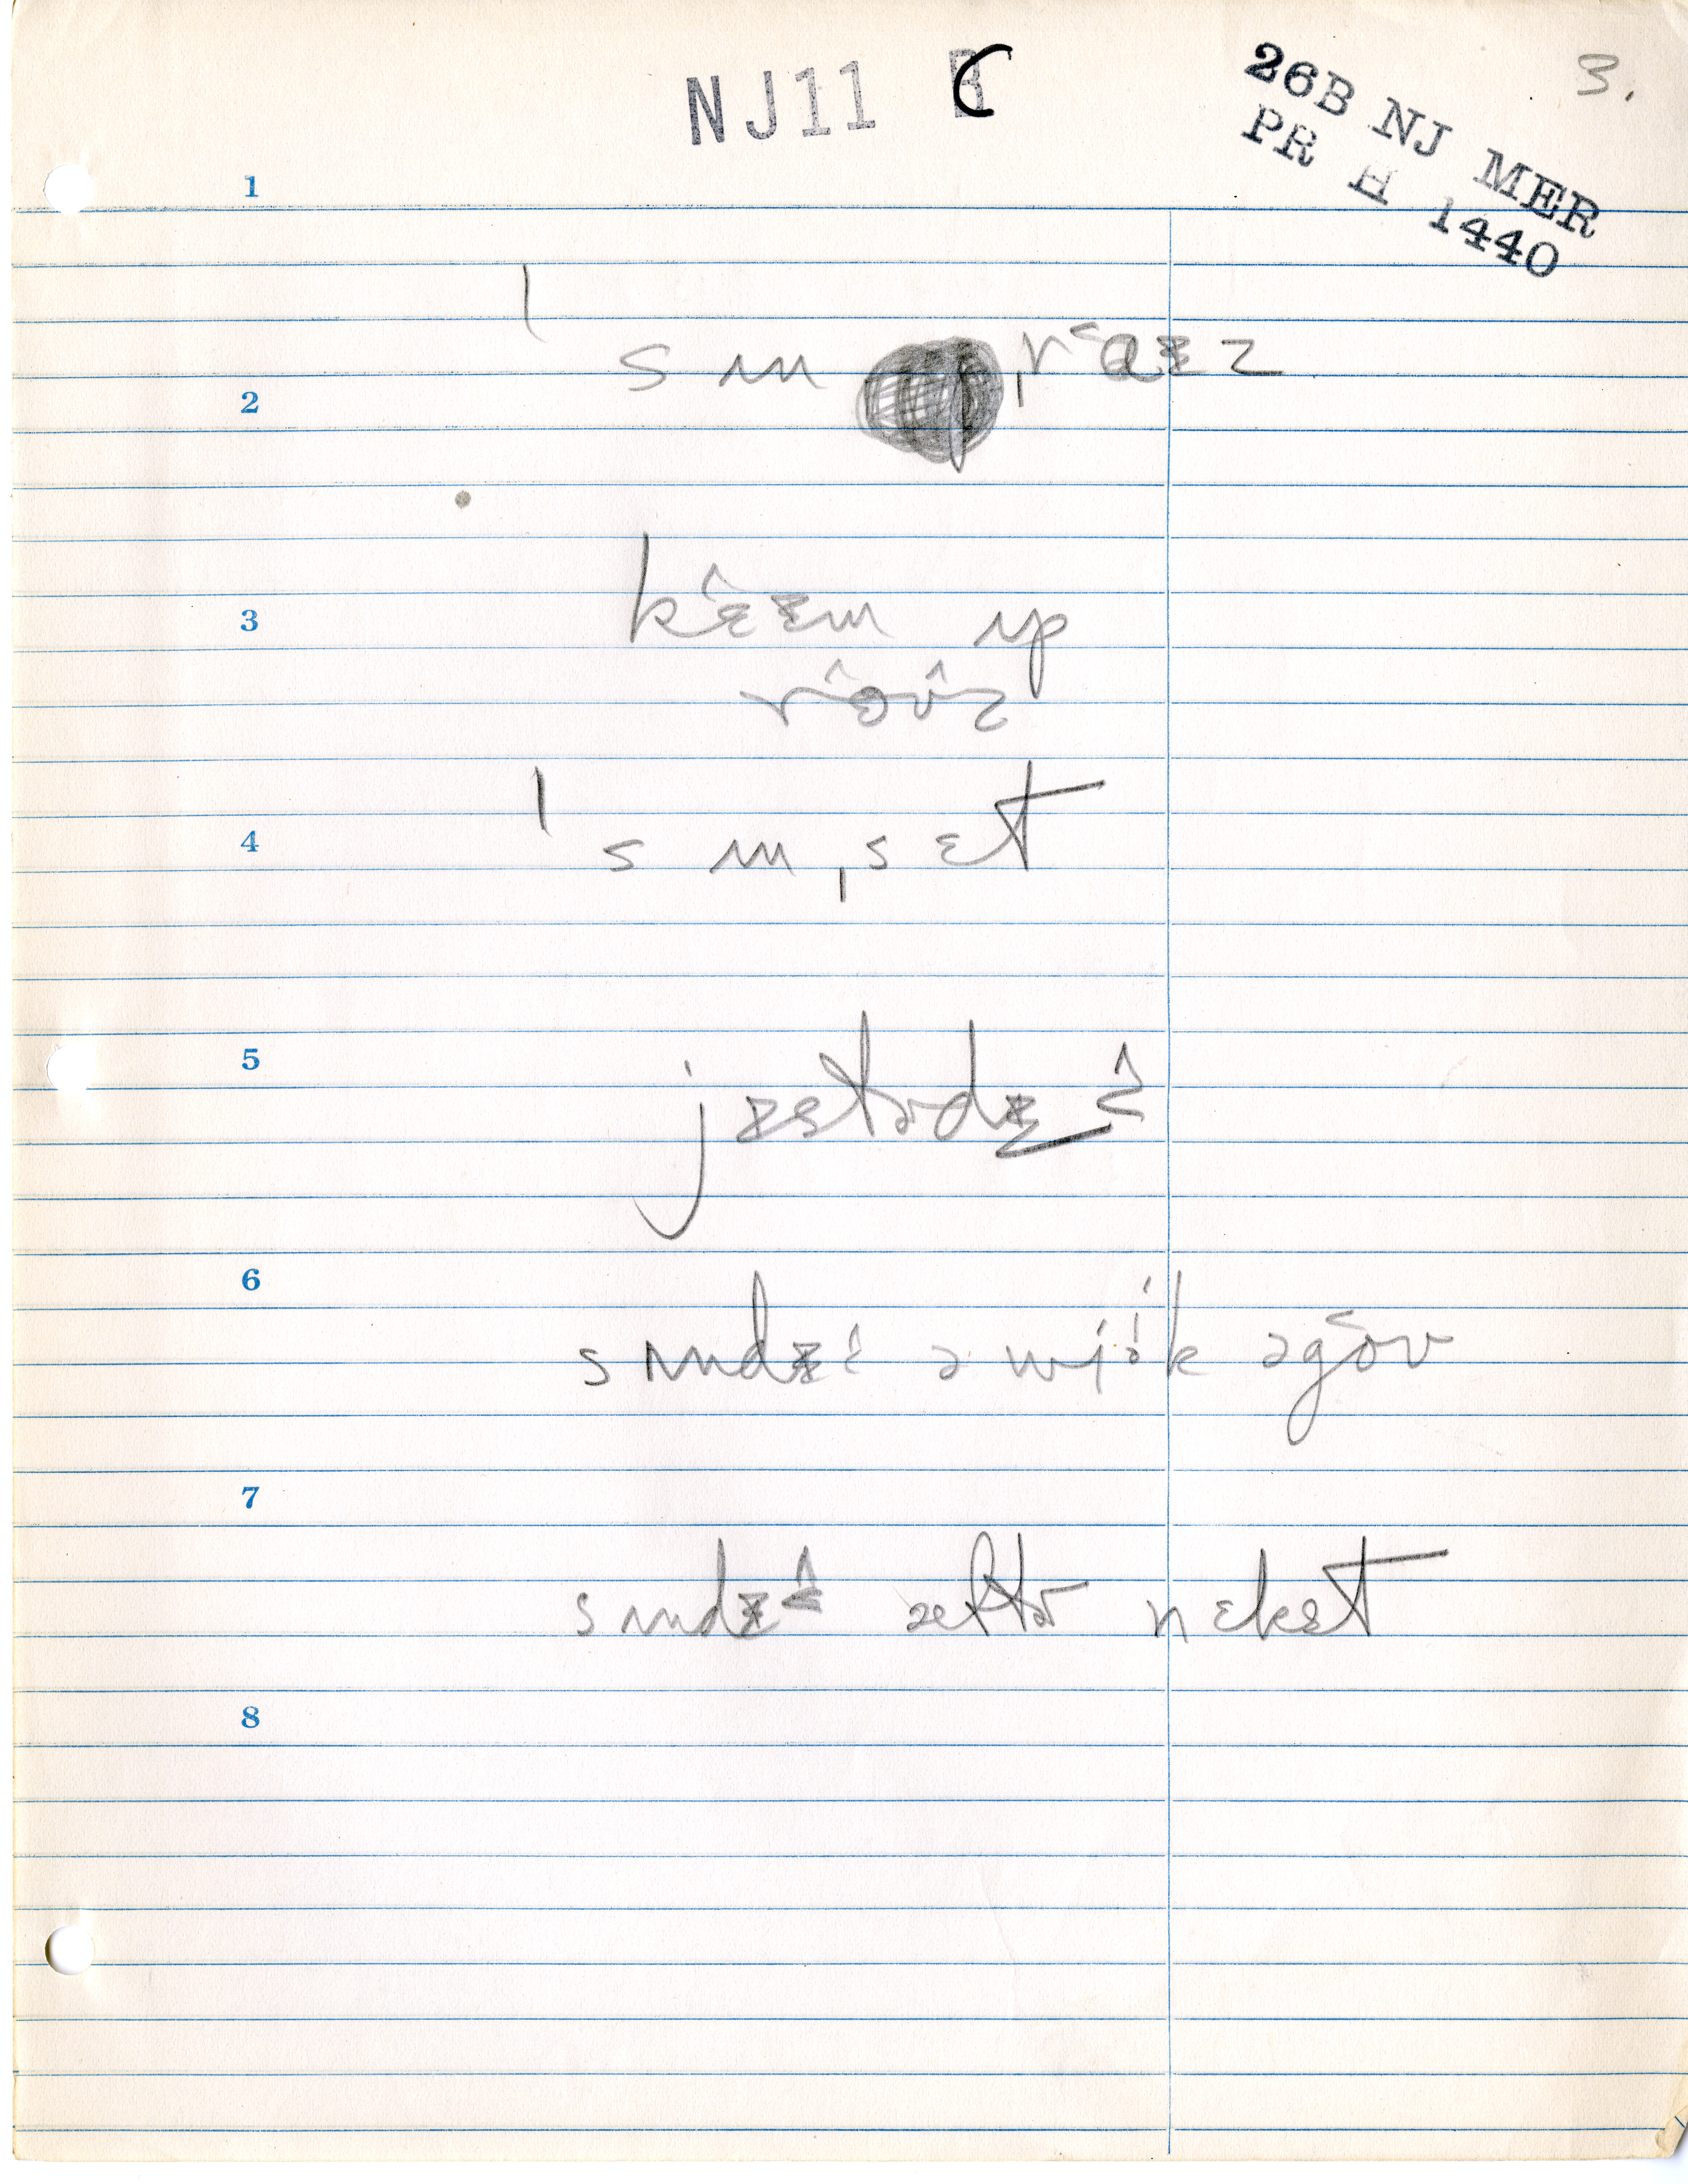 NJ11 C
3.
26B NJ MER
PR H 1440
1
ˈsʌnˌrᵃ·ɪz
2
kᵋɪm ʌp
3
rᵒʊz
ˈsʌnˌsɛt
4
5
jɛstɚdɪ
6
sʌndɪ ə wiᵊk əgoʊ
7
sʌndɪ æftɚ nɛkst
8